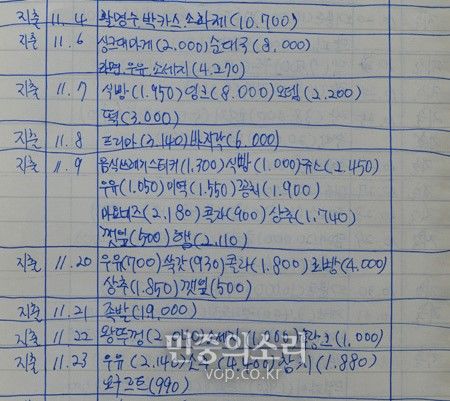 지출 11.4 활명수 박카스 소화제(10.700)
지출 11.6 싱크대마개(2.000) 순대국(8.000)
라면.우유.소세지(4.270)
지출 11.7 식빵(1.950) 잉크(8.000) 오뎅(2.200)
떡(3.000)
지출 11.8 프리마(3.140) 바지락(6.000)
지출 11.9 음식쓰레기스티커(1.300) 식빵(1.000) 쥬스(2.450)
우유(1.050) 미역(1.550) 꽁치(1.900)
마요네즈(2.180) 콜라(900) 상추(1.740)
깻잎(500) 햄(2.110)
지출 11.20 우유(700) 쑥갓(930) 콜라(1.800) (4.000)
상추(1.850) 깻잎(500)
지출 11.21 족발(19.000)
지출 11.22 왕뚜껑 (1.000)
지출 11.23 우유(2.140) 참치(1.880)
요구르트(990)
민중의소리
vop.co.kr